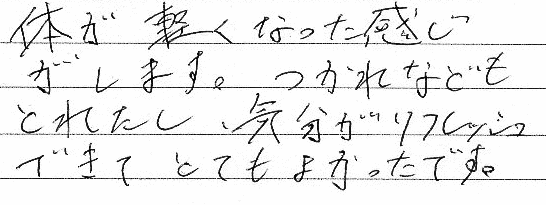 体が軽くなった感じ
がします。つかれなども
とれたし、気分がリフレッシュ
できてとてもよかったです。